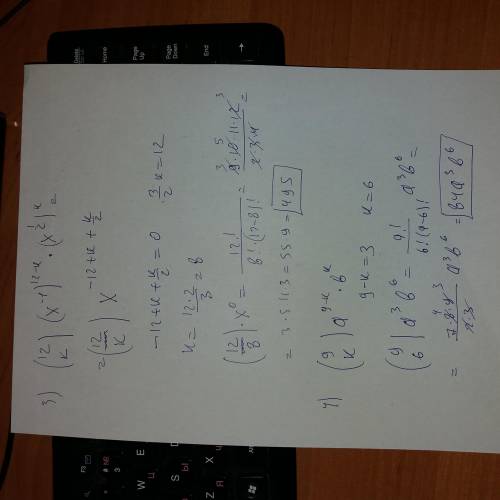 3) (12/к) (x⁻¹)^(12-к) · (x^(1/2))^к =
= (12/к) x^(-12+к+к/2)
-12+к+к/2 = 0   3/2 к = 12
к = 12·2/3 = 8
(12/8) · x⁰ = 12!/(8!·(12-8)!) = 9·10·11·12/(2·3·4) =
= 3·5·11·3 = 55·9 = 495
4) (9/к) a^(9-к) · b^к
9-к = 3   к = 6
(9/6) a³b⁶ = 9!/(6!(9-6)!) a³b⁶ =
= 7·8·9/(2·3) a³b⁶ = 84a³b⁶
Home
Page Up
Page Down
End
F3